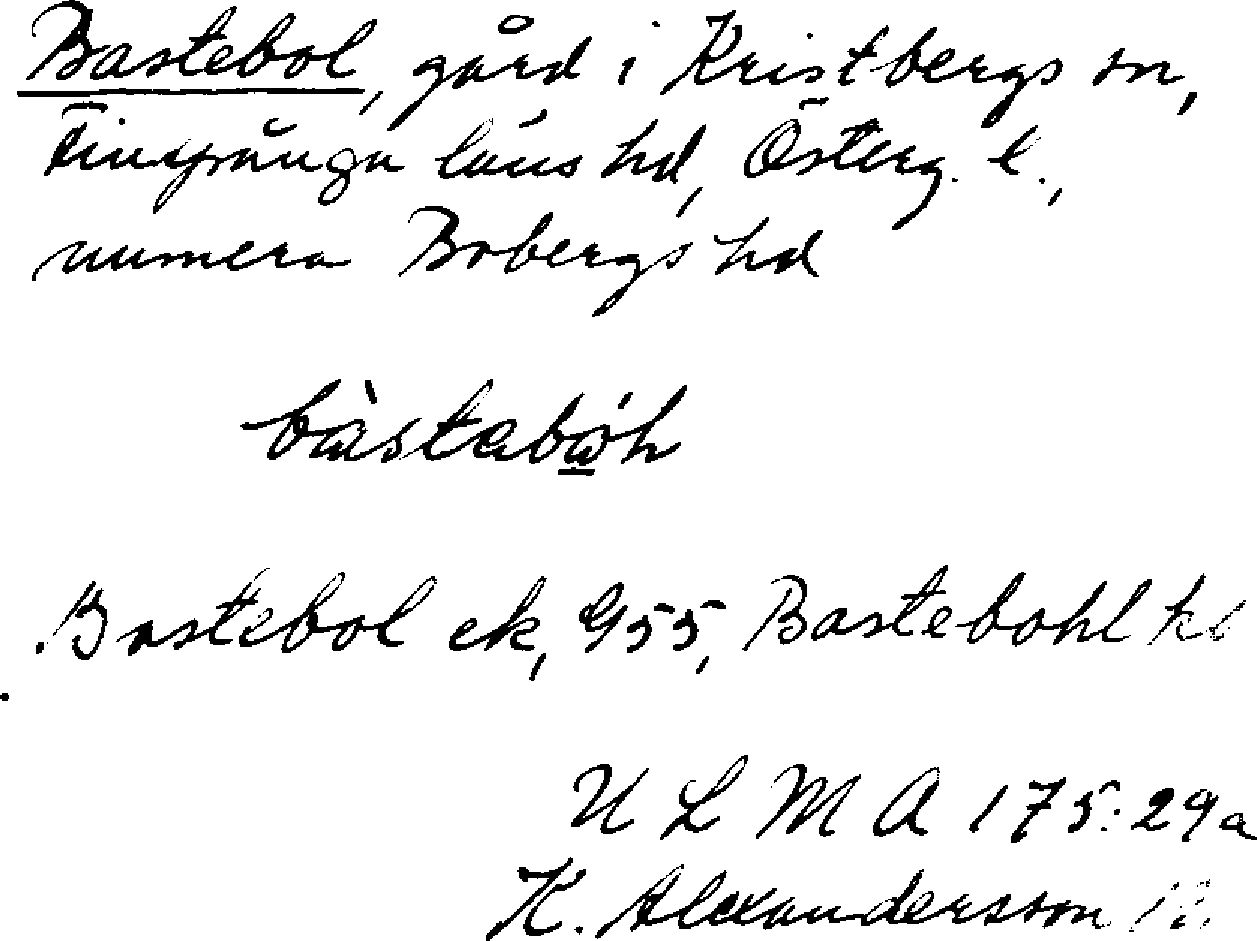 Bastebol, gård i Kristbergs sn,
Finspånga läns hd, Österg. l.,
numera Bobergs hd
Bastebol ek, G55, Bastebohl
U L M A 175:29a
K. Alexandersson